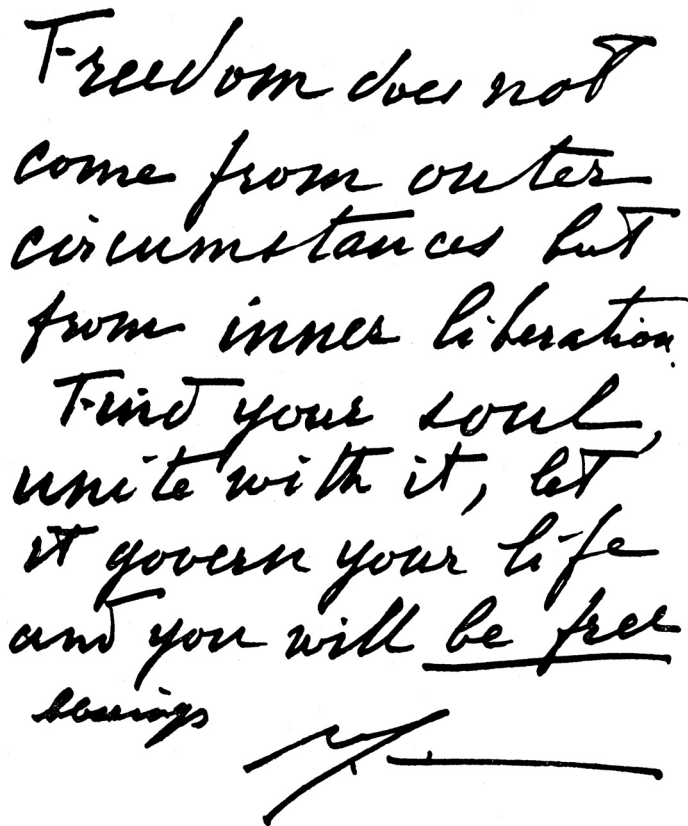 Freedom does not
come from outer
circumstances but
from inner liberation.
Find your soul,
unite with it, let
it govern your life
and you will be free
blessings